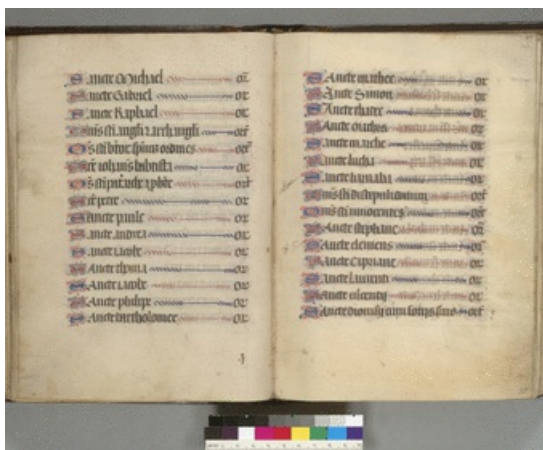 Sancte Michael or
Sancte Gabriel or
Sancte Raphael or
Oms sci angli z archangli orate
Oms sci btor spuum ordines orate
Sce iohannes baptista or
Oms sci prche z pphte orate
Sce petre or
Sancte paule or
Sancte andrea or
Sancte iacobe or
Sancte thoma or
Sancte iacobe or
Sancte philipe or
Sancte bartholomee or
Sancte mathee or
Sancte Simon or
Sancte thadee or
Sancte mathia or
Sancte marche or
Sancte lucha or
Sancte barnaba or
Oms sci discipuli orate
Oms sci innocentes orate
Sancte stephane or
Sancte clemens or
Sancte Cipriane or
Sancte laurenti or
Sancte vincenti or
Sancte dionisi cum sociis orate